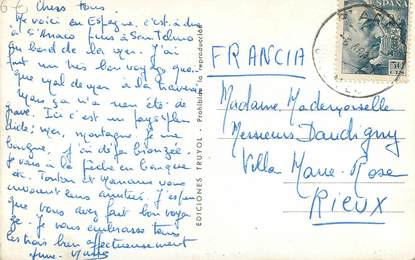 Chers tous.
Me voici en Espagne, c'est à dire
à S'Arraco près San Telmo
au bord de la mer. J'ai
fait un très bon voyage que
que mal de mer à la traversée
Mais ça n'a rien été de
grave. Ici c'est un pays splen
dide; mer, montagne
. J'ai déjà bronzée.
Je vais à la pêche en barque
etc. Tonton et Maman vous
envoient leurs amitiés. J'espère
que vous avez fait bon voya
ge. Je vous embrasse tous
très bien affectueusement
EDICIONES TRUYOL. - Prohibida la reproducción
FRANCIA
Madame Mademoiselle
Messieurs Daudigny
Villa Marie-Rose
RIEUX
ESPAÑA
50
CTS